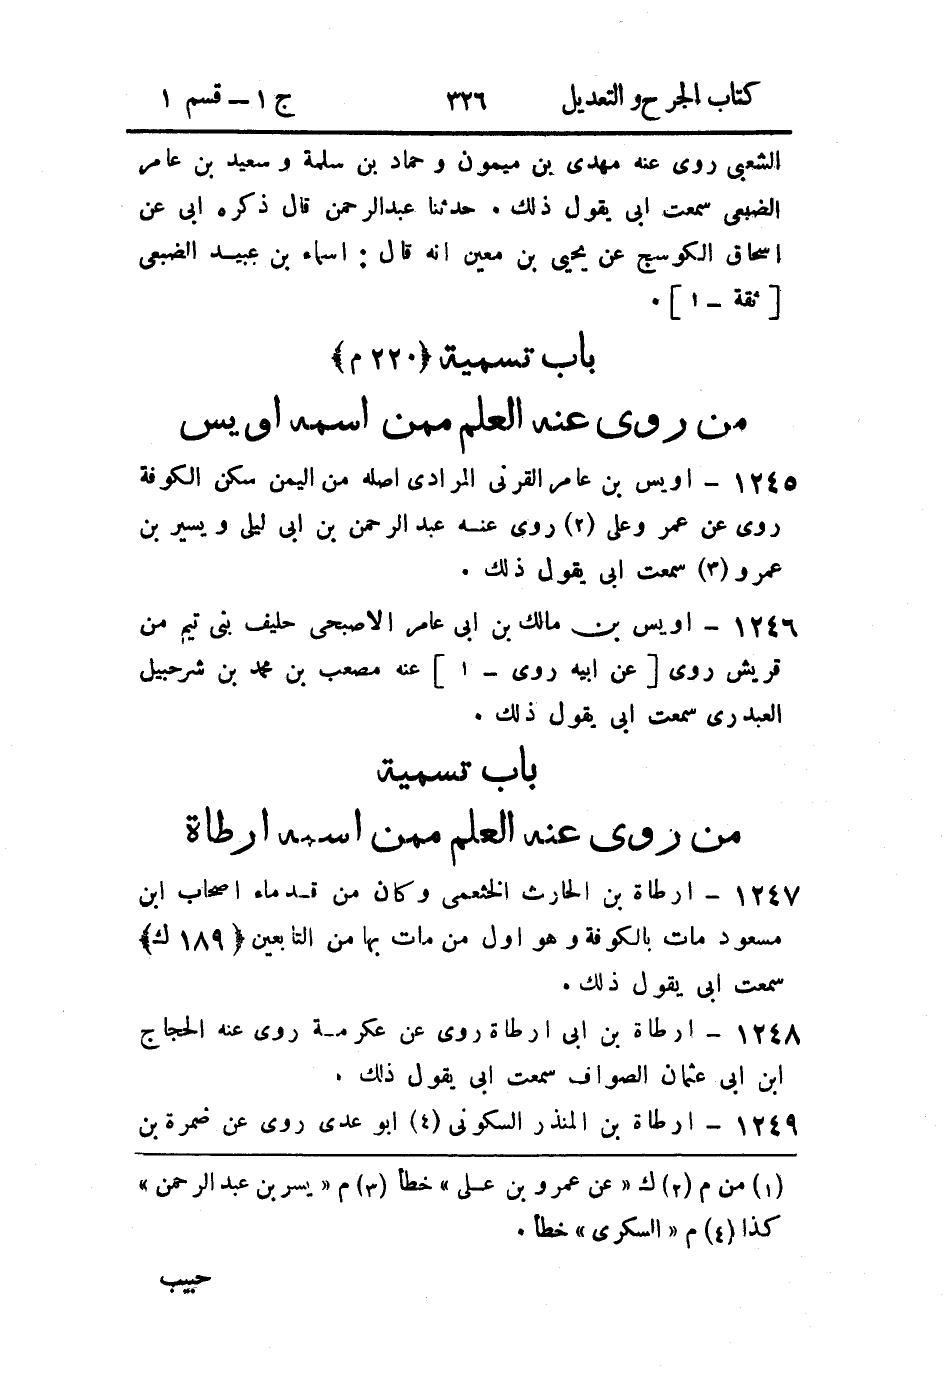 كتاب الجرح و التعديل ٣٢٦ ج ١ – قسم ١
الشعبى روى عنه مهدى بن ميمون و حماد بن سلمة و سعيد بن عامر
الضبعى سمعت ابى يقول ذلك . حدثنا عبدالرحمن قال ذكره ابى عن
اسحاق الكوسج عن يحيى بن معين انه قال : اسماء بن عبيد الضبعى
[ ثقة – ١ ] .
باب تسمية ﴿٢٢٠ م﴾
من روى عنه العلم ممن اسمه اويس
١٢٤٥ – اويس بن عامر القرنى المرادى اصله من اليمن سكن الكوفة
روى عن عمر وعلى (٢) روى عنه عبد الرحمن بن ابى ليلى و يسير بن
عمرو (٣) سمعت ابى يقول ذلك .
١٢٤٦ – اويس بن مالك بن ابى عامر الاصبحى حليف بنى تيم من
قريش روى [ عن ابيه روى – ١ ] عنه مصعب بن محمد بن شرحبيل
العبدرى سمعت ابى يقول ذلك .
باب تسمية
من روى عنه العلم ممن اسمه ارطاة
١٢٤٧ – ارطاة بن الحارث الخثعمى وكان من قدماء اصحاب ابن
مسعود مات بالكوفة و هو اول من مات بها من التابعين ﴿١٨٩ ك﴾
سمعت ابى يقول ذلك .
١٢٤٨ – ارطاة بن ابى ارطاة روى عن عكرمة روى عنه الحجاج
ابن ابى عثمان الصواف سمعت ابى يقول ذلك .
١٢٤٩ – ارطاة بن المنذر السكونى (٤) ابو عدى روى عن ضمرة بن
(١) من م (٢) ك « عن عمرو بن على » خطأ (٣) م « يسر بن عبد الرحمن »
كذا (٤) م « السكرى » خطأ .
حبيب